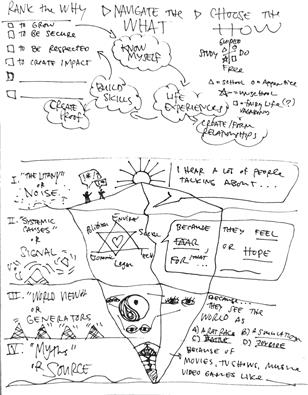 RANK THE WHY
▷ NAVIGATE THE WHAT
▷ CHOOSE THE HOW
□ TO GROW
□ TO BE SECURE
□ TO BE RESPECTED
□ TO CREATE IMPACT
□
□
KNOW MYSELF
BUILD SKILLS
LIFE EXPERIENCES
CREATE PROOF
CREATE/FORM RELATIONSHIPS
STUDY
DO
FREE
△ = SCHOOL
O = APPRENTICE
= UNSCHOOL
I. "THE LITANY"
OR
NOISE
I HEAR A LOT OF PEOPLE
TALKING ABOUT...
II. "SYSTEMIC CAUSES"
OR
SIGNAL
Social
Tech
Legal
Economic
BECAUSE THEY FEEL
FEAR, OR HOPE
FOR/THAT...
III. "WORLD VIEWS"
OR
GENERATORS
BECAUSE...
THEY SEE THE
WORLD AS
A) A RAT RACE B) A SIMULATION
IV. "MYTHS"
OR SOURCE
BECAUSE OF
MOVIES, TV SHOWS, MUSIC
VIDEO GAMES LIKE